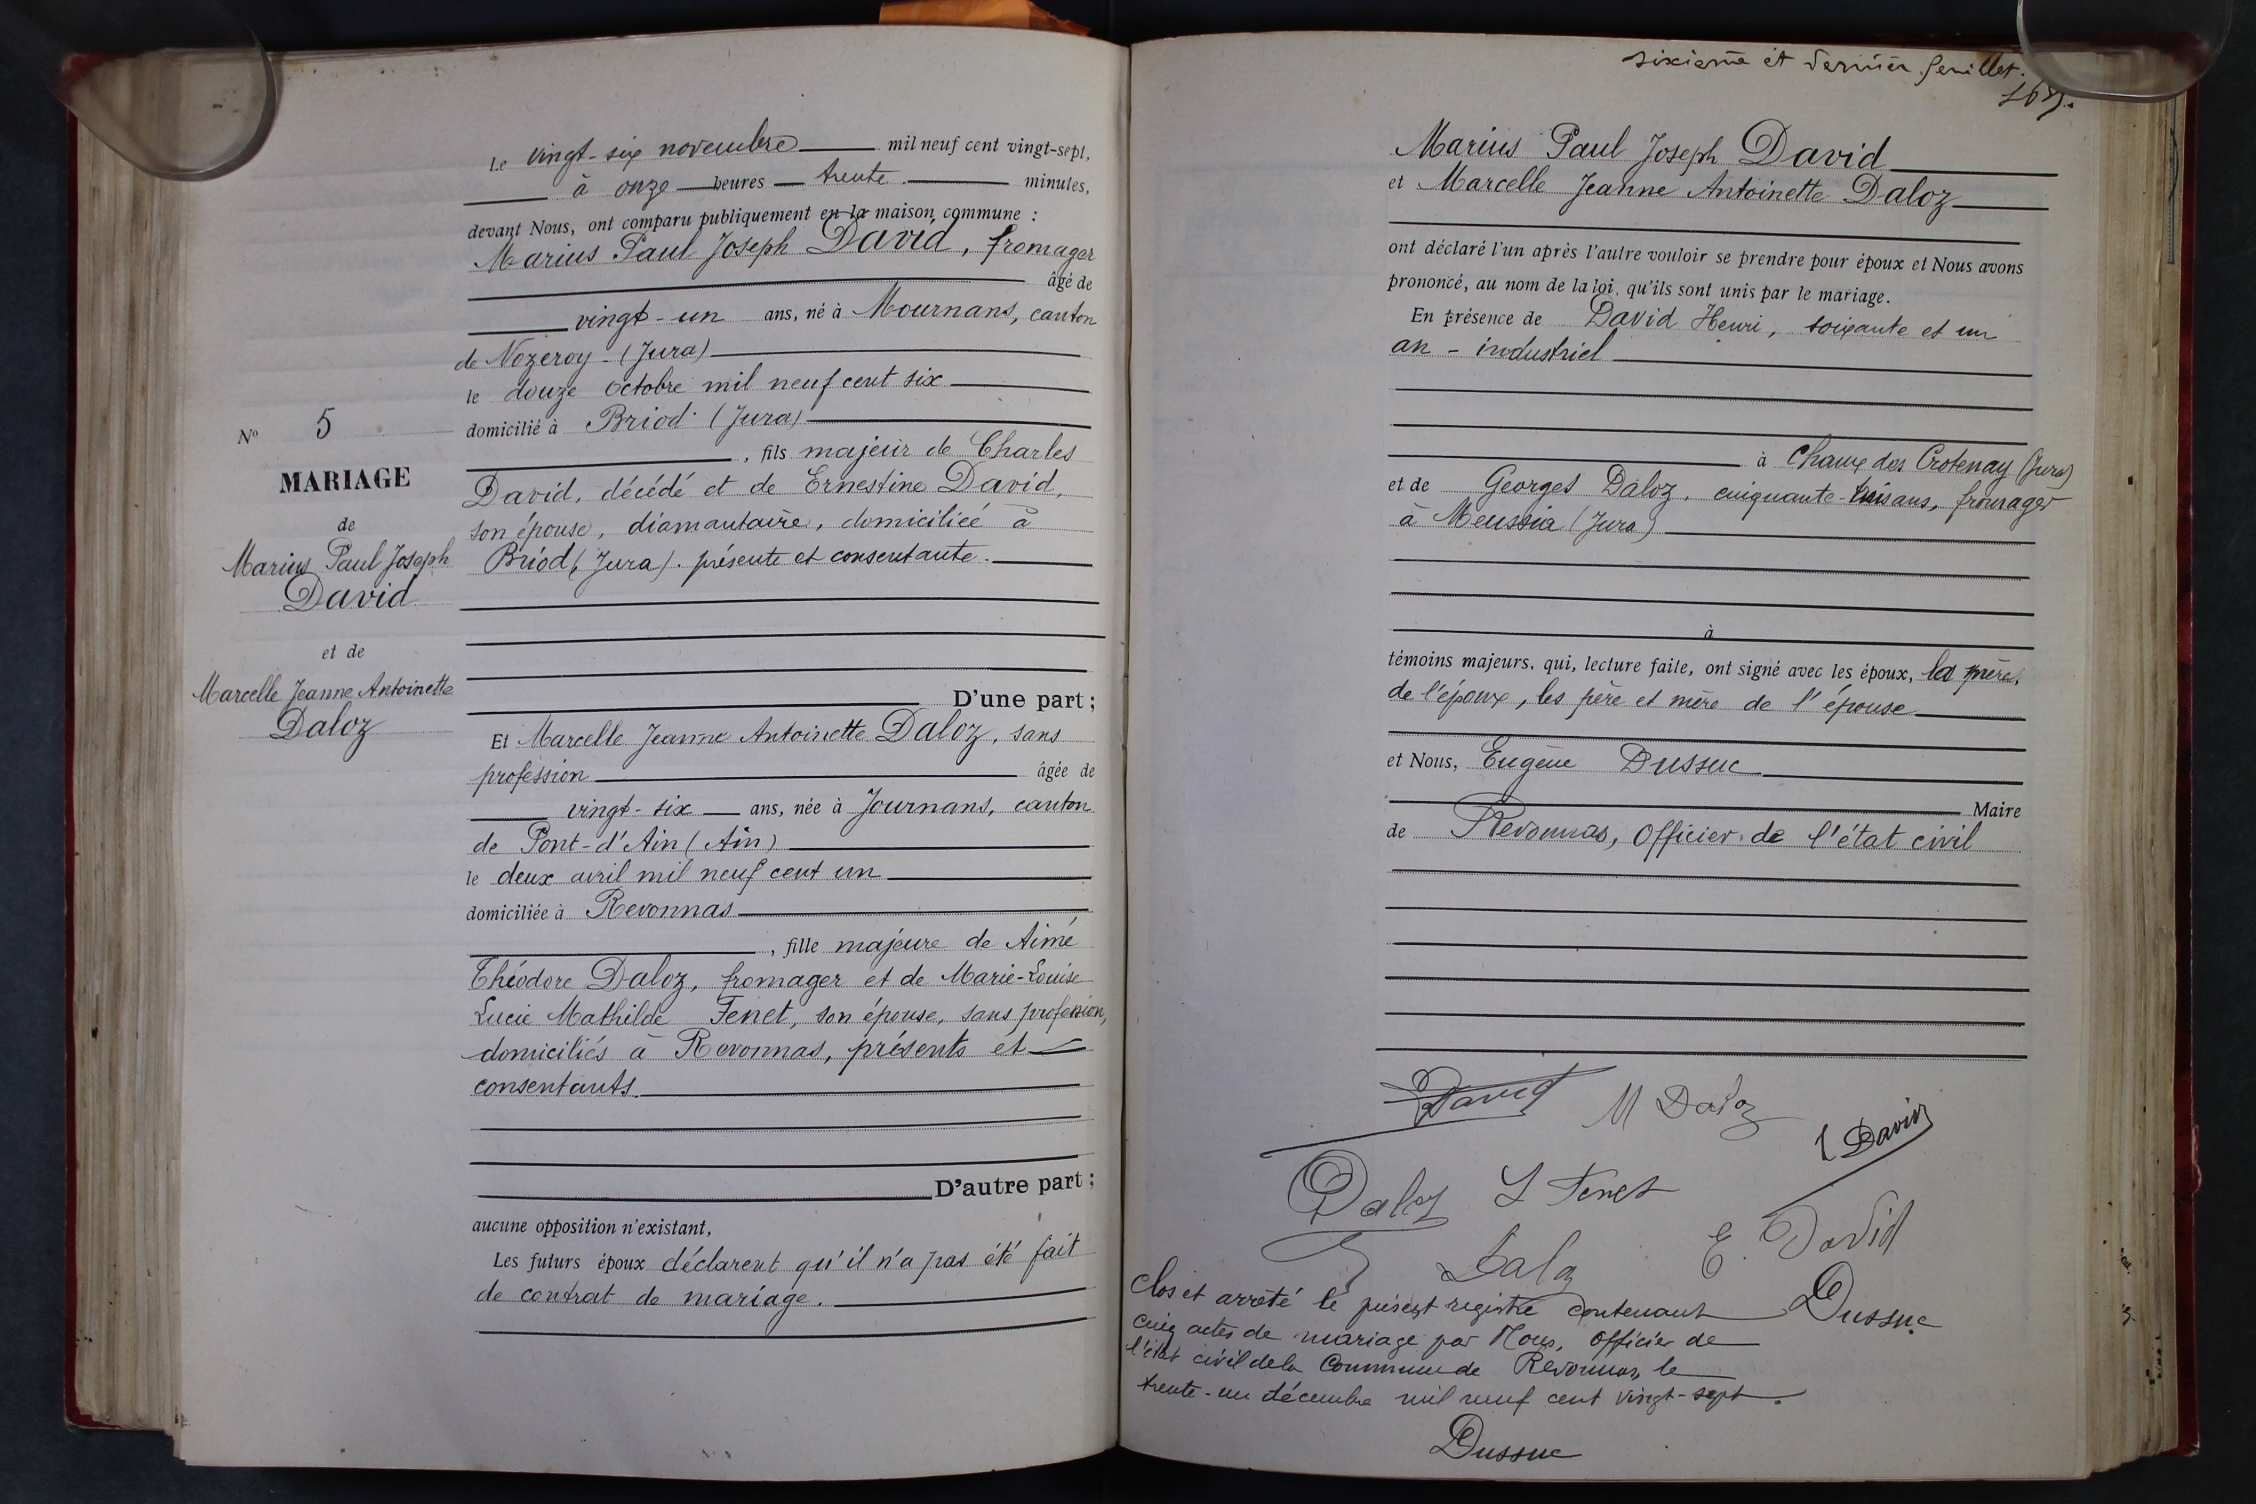 Le vingt-six novembre mil neuf cent vingt-sept,
à onze heures trente minutes,
devant Nous, ont comparu publiquement en la maison commune :
Marius Paul Joseph David, fromager
âgé de
vingt-un ans, né à Mournans, canton
de Nozeroy - (Jura)
le douze octobre mil neuf cent six
domicilié à Briod (Jura)
, fils majeur de Charles
David, décédé et de Ernestine David,
son épouse, diamantaire, domiciliée à
Briod (Jura). présente et consentante.
D'une part ;
Et Marcelle Jeanne Antoinette Daloz, sans
profession âgée de
vingt-six ans, née à Journans, canton
de Pont-d'Ain (Ain)
le deux avril mil neuf cent un
domiciliée à Revonnas
, fille majeure de Aimé
Théodore Daloz, fromager et de Marie-Louise
Lucie Mathilde Fenet, son épouse, sans profession,
domiciliés à Revonnas, présents et
consentants.
D'autre part ;
aucune opposition n'existant,
Les futurs époux déclarent qu'il n'a pas été fait
de contrat de mariage.
No 5
MARIAGE
de
Marius Paul Joseph
David
et de
Marcelle Jeanne Antoinette
Daloz
sixième et dernier feuillet.
Marius Paul Joseph David
et Marcelle Jeanne Antoinette Daloz
ont déclaré l'un après l'autre vouloir se prendre pour époux et Nous avons
prononcé, au nom de la loi, qu'ils sont unis par le mariage.
En présence de David Henri, soixante et un
an - industriel
à Chaux des Crotenay (Jura)
et de Georges Daloz, cinquante-trois ans, fromager
à Meussia (Jura)
à
témoins majeurs, qui, lecture faite, ont signé avec les époux, la mère,
de l'époux, les père et mère de l'épouse
et Nous, Eugène Dussuc
Maire
de Revonnas, Officier de l'état civil
David M Daloz
David
Daloz L Fenet
E. David
Daloz
Dussuc
Clos et arrêté le présent registre contenant
cinq actes de mariage par Nous, Officier de
l'état civil de la Commune de Revonnas, le
trente-un décembre mil neuf cent vingt-sept.
Dussuc